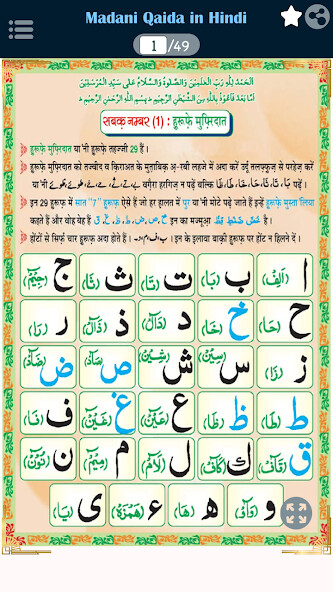 Madani Qaida in Hindi
1 /49
اَلْحَمْدُ لِلّٰهِ رَبِّ الْعٰلَمِيْنَ وَالصَّلٰوةُ وَالسَّلَامُ عَلٰى سَيِّدِ الْمُرْسَلِيْنَ
اَمَّا بَعْدُ فَاَعُوْذُ بِاللّٰهِ مِنَ الشَّيْطٰنِ الرَّجِيْمِ ؕ بِسْمِ اللّٰهِ الرَّحْمٰنِ الرَّحِيْمِ ؕ
सबक़ नम्बर (1) : हुरूफ़े मुफ़्रिदात
हुरूफ़े मुफ़्रिदात या'नी हुरूफ़े तहज्जी 29 हैं ।
हुरूफ़े मुफ़्रिदात को तज्वीद व क़िराअत के मुताबिक़ अ-रबी लहजे में अदा करें उर्दू तलफ़्फ़ुज़ से परहेज़ करें
वग़ैरा हरगिज़ न पढ़ें बल्कि بَا، تَا، ثَا، حَا، خَا، طَا، ظَا पढ़ें ।
इन 29 हुरूफ़ में सात "7" हुरूफ़ ऐसे हैं जो हर हालत में पुर या'नी मोटे पढ़े जाते हैं इन्हें हुरूफ़े मुस्ता'लिया
कहते हैं और वोह येह हैं خ، ص، ض، ط، ظ، غ، ق इन का मज्मूआ خُصَّ ضَغْطٍ قِظْ है ।
होंटों से सिर्फ़ चार हुरूफ़ अदा होते हैं । ب، ف، م، و । इन के इलावा बाक़ी हुरूफ़ पर होंट न हिलने दें ।
ا (اَلِفْ) ب (بَا) ت (تَا) ث (ثَا) ج (جِيْمْ)
ح (حَا) خ (خَا) د (دَالْ) ذ (ذَالْ) ر (رَا)
ز (زَا) س (سِيْنْ) ش (شِيْنْ) ص (صَادْ) ض (ضَادْ)
ط (طَا) ظ (ظَا) ع (عَيْنْ) غ (غَيْنْ) ف (فَا)
ق (قَافْ) ك (كَافْ) ل (لَامْ) م (مِيْمْ) ن (نُوْنْ)
و (وَاوْ) ه (هَا) ء (هَمْزَهْ) ی (يَا)